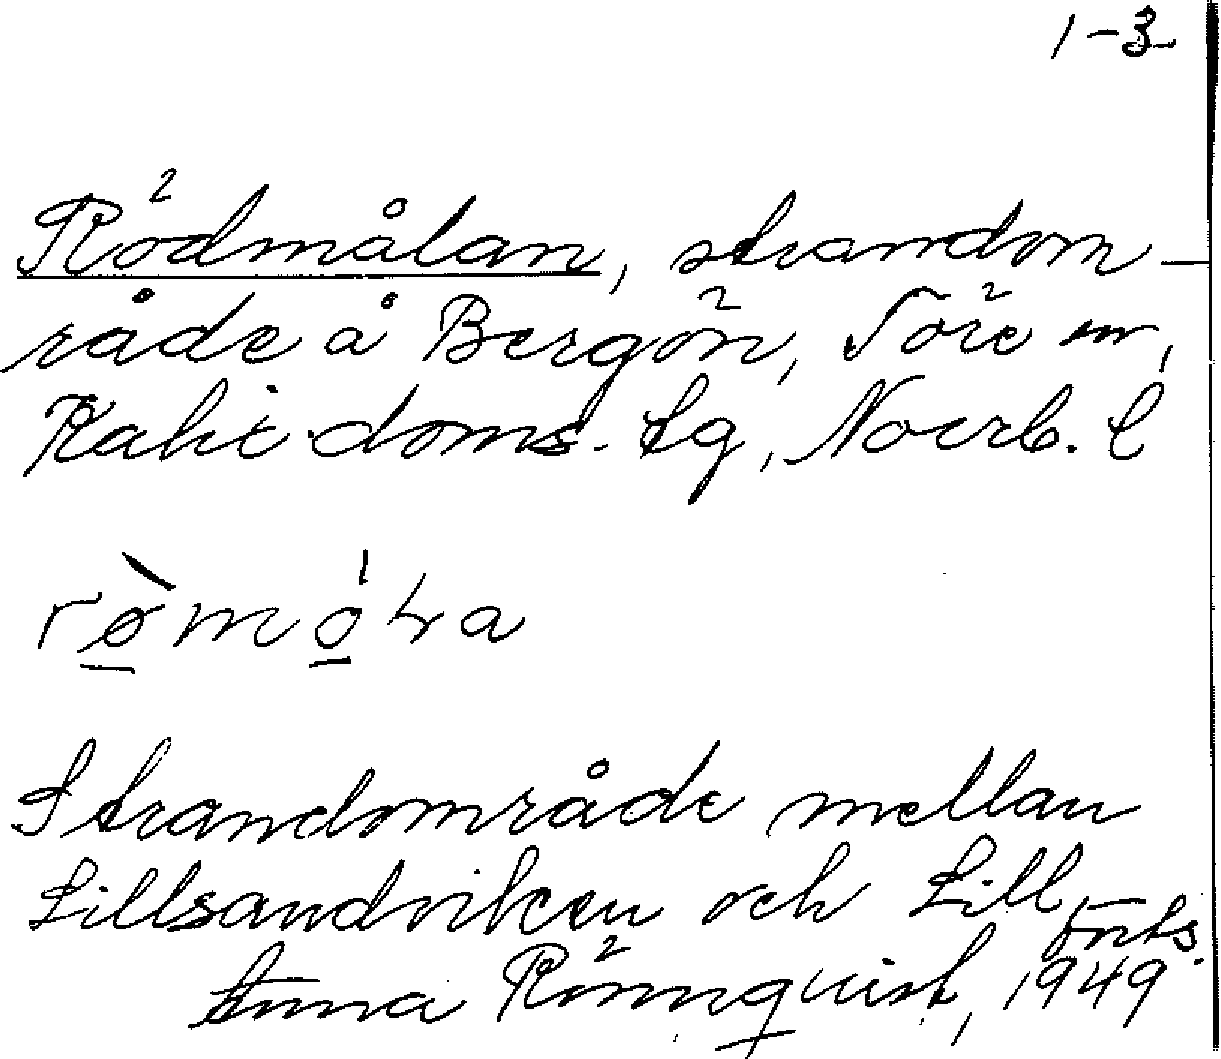 1-3
Rödmålan, strandom-
råde å Bergön, Töre sn,
Kalix doms. lg, Norrb. l
Strandområde mellan
Lillsandviken och Lill
forts.
Anna Rönnquist, 1949